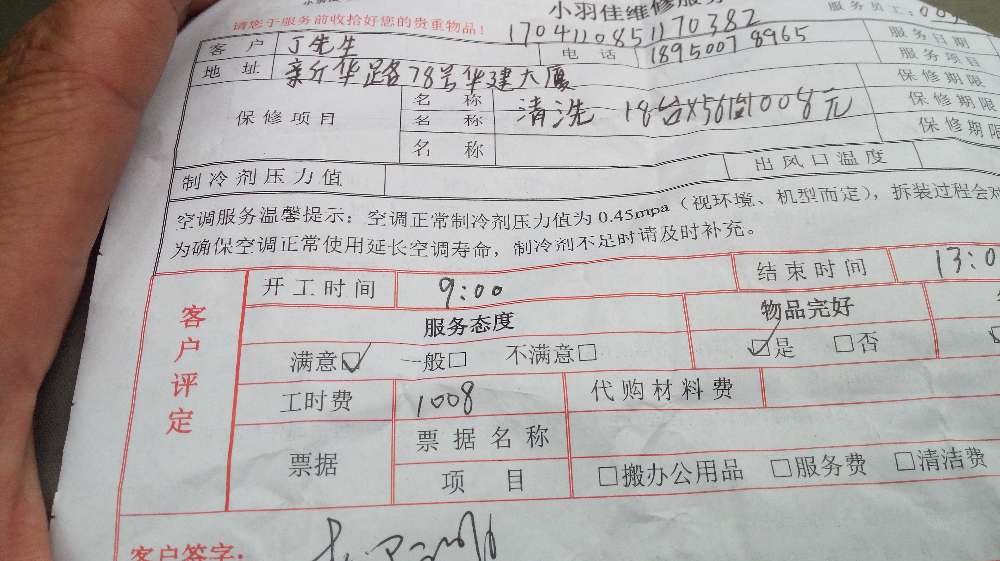 请您于服务前收拾好您的贵重物品！
小羽佳维修服务
服务员工：00
1704110851170382
客 户 丁先生 电 话 18950078965 服务日期
地 址 华路78号华建大厦 服务项目
保修项目
名 称 保修期限
名 称 清洗 18台×56台1008元 保修期限
名 称 保修期限
制冷剂压力值 出风口温度
空调服务温馨提示：空调正常制冷剂压力值为 0.45mpa（视环境、机型而定），拆装过程会对
为确保空调正常使用延长空调寿命，制冷剂不足时请及时补充。
客户评定
开工时间 9:00 结束时间 13:0
服务态度 物品完好
满意☑ 一般□ 不满意□ ☑是 □否
工时费 1008 代购材料费
票据 票据名称
项 目 □搬办公用品 □服务费 □清洁费
客户签字：